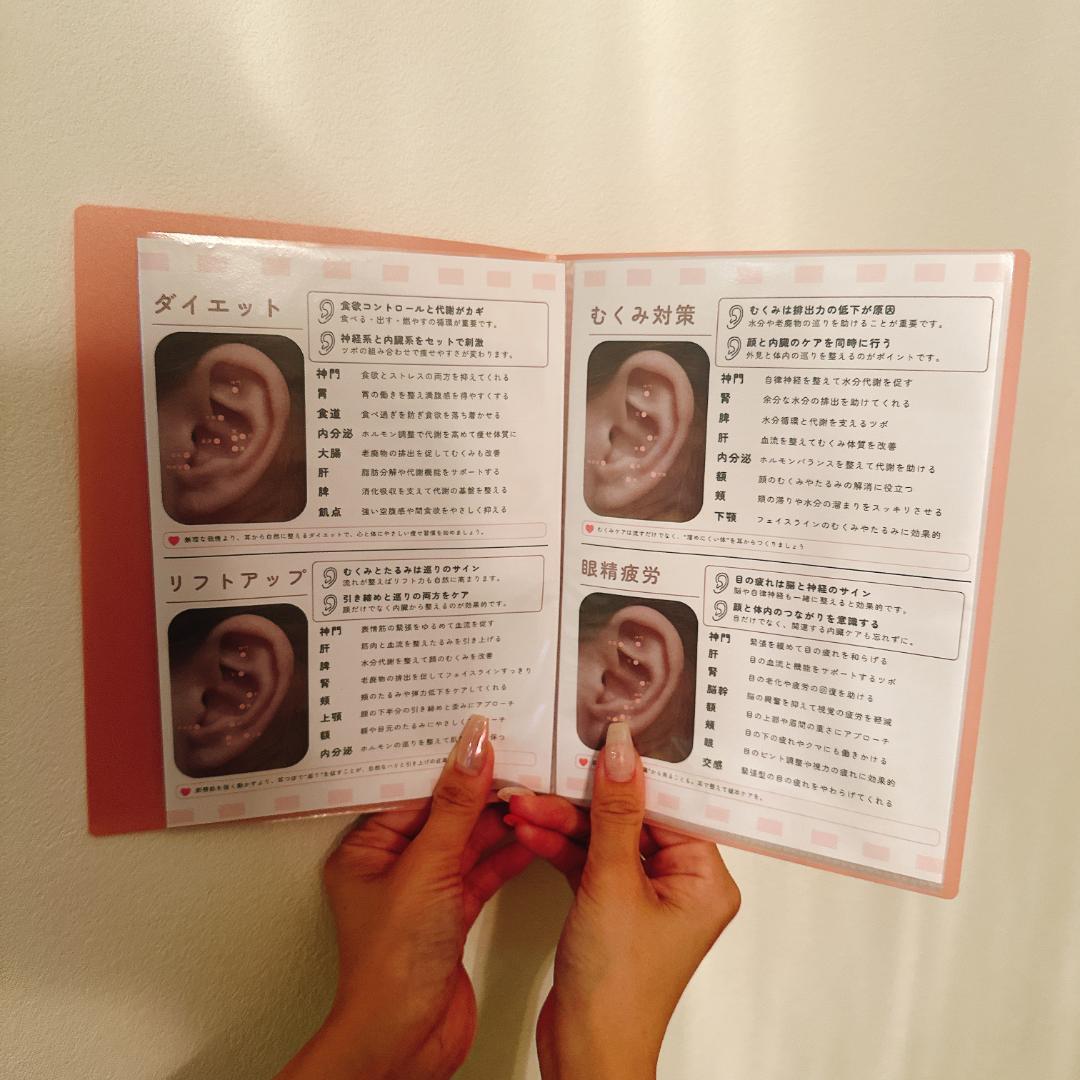 ダイエット
食欲コントロールと代謝がカギ
食べる・出す・燃やすの循環が重要です。
神経系と内臓系をセットで刺激
ツボの組み合わせで痩せやすさが変わります。
神門 食欲とストレスの両方を抑えてくれる
胃 胃の働きを整え満腹感を得やすくする
食道 食べ過ぎを防ぎ食欲を落ち着かせる
内分泌 ホルモン調整で代謝を高めて痩せ体質に
大腸 老廃物の排出を促してむくみも改善
肝 脂肪分解や代謝機能をサポートする
脾 消化吸収を支えて代謝の基盤を整える
飢点 強い空腹感や間食欲をやさしく抑える
無理な我慢より、耳から自然に整えるダイエットで、心と体にやさしい痩せ習慣を始めましょう。
リフトアップ
むくみとたるみは巡りのサイン
流れが整えばリフト力も自然に高まります。
引き締めと巡りの両方をケア
顔だけでなく内臓から整えるのが効果的です。
神門 表情筋の緊張をゆるめて血流を促す
肝 筋肉と血流を整えたるみを引き上げる
脾 水分代謝を整えて顔のむくみを改善
腎 老廃物の排出を促してフェイスラインすっきり
頬 頬のたるみや弾力低下をケアしてくれる
上顎 顔の下半分の引き締めと歪みにアプローチ
額 額や目元のたるみにやさしく
内分泌 ホルモンの巡りを整えて
表情筋を強く動かすより、耳つぼで“巡り”を促すことが、自然なハリと引き上げの
むくみ対策
むくみは排出力の低下が原因
水分や老廃物の巡りを助けることが重要です。
顔と内臓のケアを同時に行う
外見と体内の巡りを整えるのがポイントです。
神門 自律神経を整えて水分代謝を促す
腎 余分な水分の排出を助けてくれる
脾 水分循環と代謝を支えるツボ
肝 血流を整えてむくみ体質を改善
内分泌 ホルモンバランスを整えて代謝を助ける
額 顔のむくみやたるみの解消に役立つ
頬 頬の滞りや水分の溜まりをスッキリさせる
下顎 フェイスラインのむくみやたるみに効果的
むくみケアは流すだけでなく、“溜めにくい体”を耳からつくりましょう
眼精疲労
目の疲れは脳と神経のサイン
脳や自律神経も一緒に整えると効果的です。
顔と体内のつながりを意識する
目だけでなく、関連する内臓ケアも忘れずに。
神門 緊張を緩めて目の疲れを和らげる
肝 目の血流と機能をサポートするツボ
腎 目の老化や疲労の回復を助ける
脳幹 脳の興奮を抑えて視覚の疲労を軽減
額 目の上部や眉間の重さにアプローチ
頬 目の下の疲れやクマにも働きかける
眼 目のピント調整や視力の疲れに効果的
交感 緊張型の目の疲れをやわらげてくれる
から来ることも。耳で整えて根本ケアを。